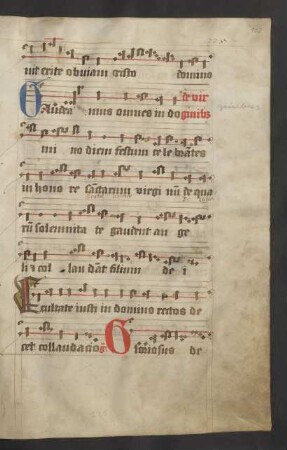 nit exite obuiam cristo domino
de vir
Gaudea mus omnes in do ginibus
mi no diem festum ce le brantes
in hono re sanctarum virgi num de qua
rum solemnita te gaudent an ge
li et col lau dant filium de i
Exultate iusti in domino rectos de
cet collaudacio Gloriosus de